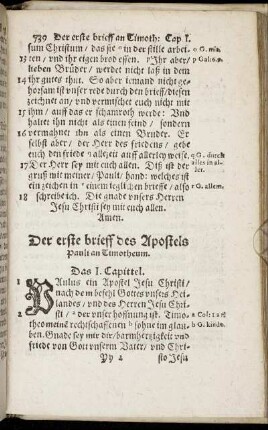 739 Der erste brieff an Timoth: Cap I.
sum Christum / das sie in der stille arbei-
13 ten / vnd ihr eigen brod essen. Ihr aber /
lieben Brüder / werdet nicht laß in dem
14 ihr gutes thut. So aber iemand nicht ge-
horsam ist vnser rede durch den brieff / diesen
zeichnet an / vnd vermischet euch nicht mit
15 ihm / auff das er schamroth werde: Vnd
haltet ihn nicht als einen feind / sondern
16 vermahnet ihn als einen Bruder. Er
selbst aber / der Herr des friedens / gebe
euch den friede allezeit auff allerley weise.
17 Der Herr sey mit euch allen. Diß ist der
gruß mit meiner / Pauli / hand: welches ist
ein zeichen in einem teglichen brieffe / also
18 schreibe ich. Die gnade vnsers Herren
Jesu Christi sey mit euch allen.
Amen.
o G. mis.
p Gal: 6.
q G. durch
alles in al-
r G. allem.
Der erste brieff des Apostels
Pauli an Timotheum.
Das I. Capittel.
1 PAulus ein Apostel Jesu Christi /
nach dem befehl Gottes vnsers Hei-
landes / vnd des Herren Jesu Chri-
2 sti / a der vnser hoffnung ist. Timo-
theo meinē rechtschaffenen b sohne im glau-
ben. Gnade sey mir dir / barmhertzigkeit vnd
friede von Gott vnserm Vater / vnd Chri-
a Col: 1
b G. kinde.
Yy 2 sto Jesu